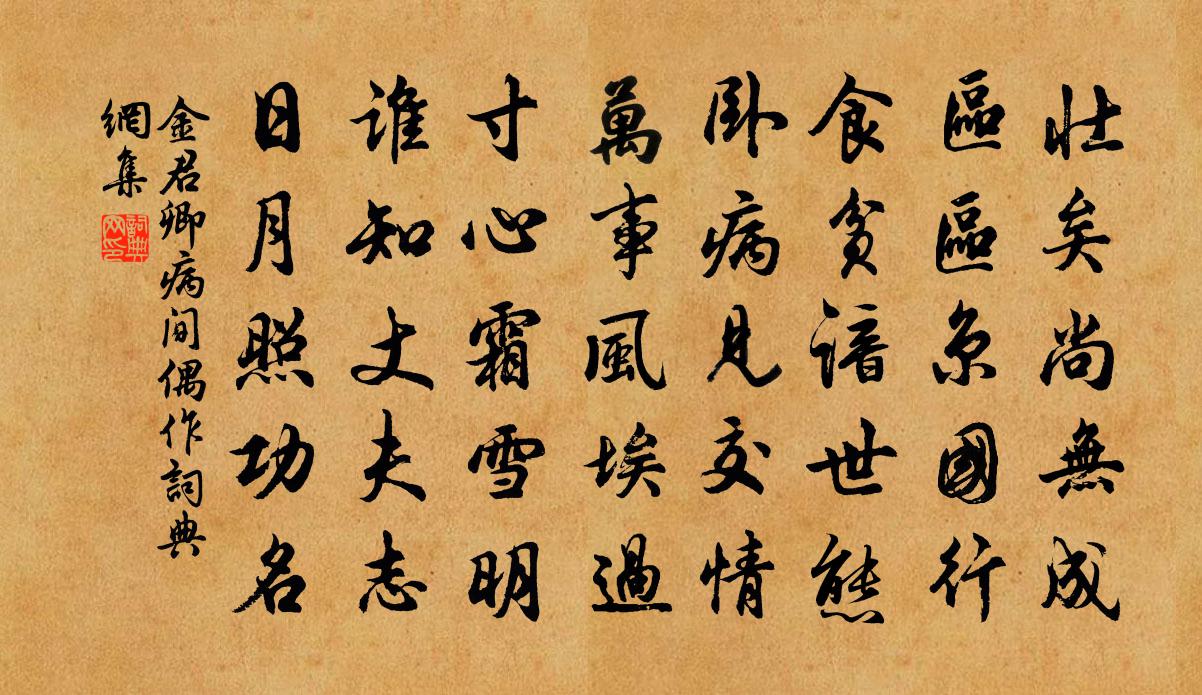 壯矣尚無成
區區京國行
食貧諳世態
臥病見交情
萬事風埃過
寸心霜雪明
誰知丈夫志
日月照功名
金君卿病間偶作詞典
網集
詞典
网印